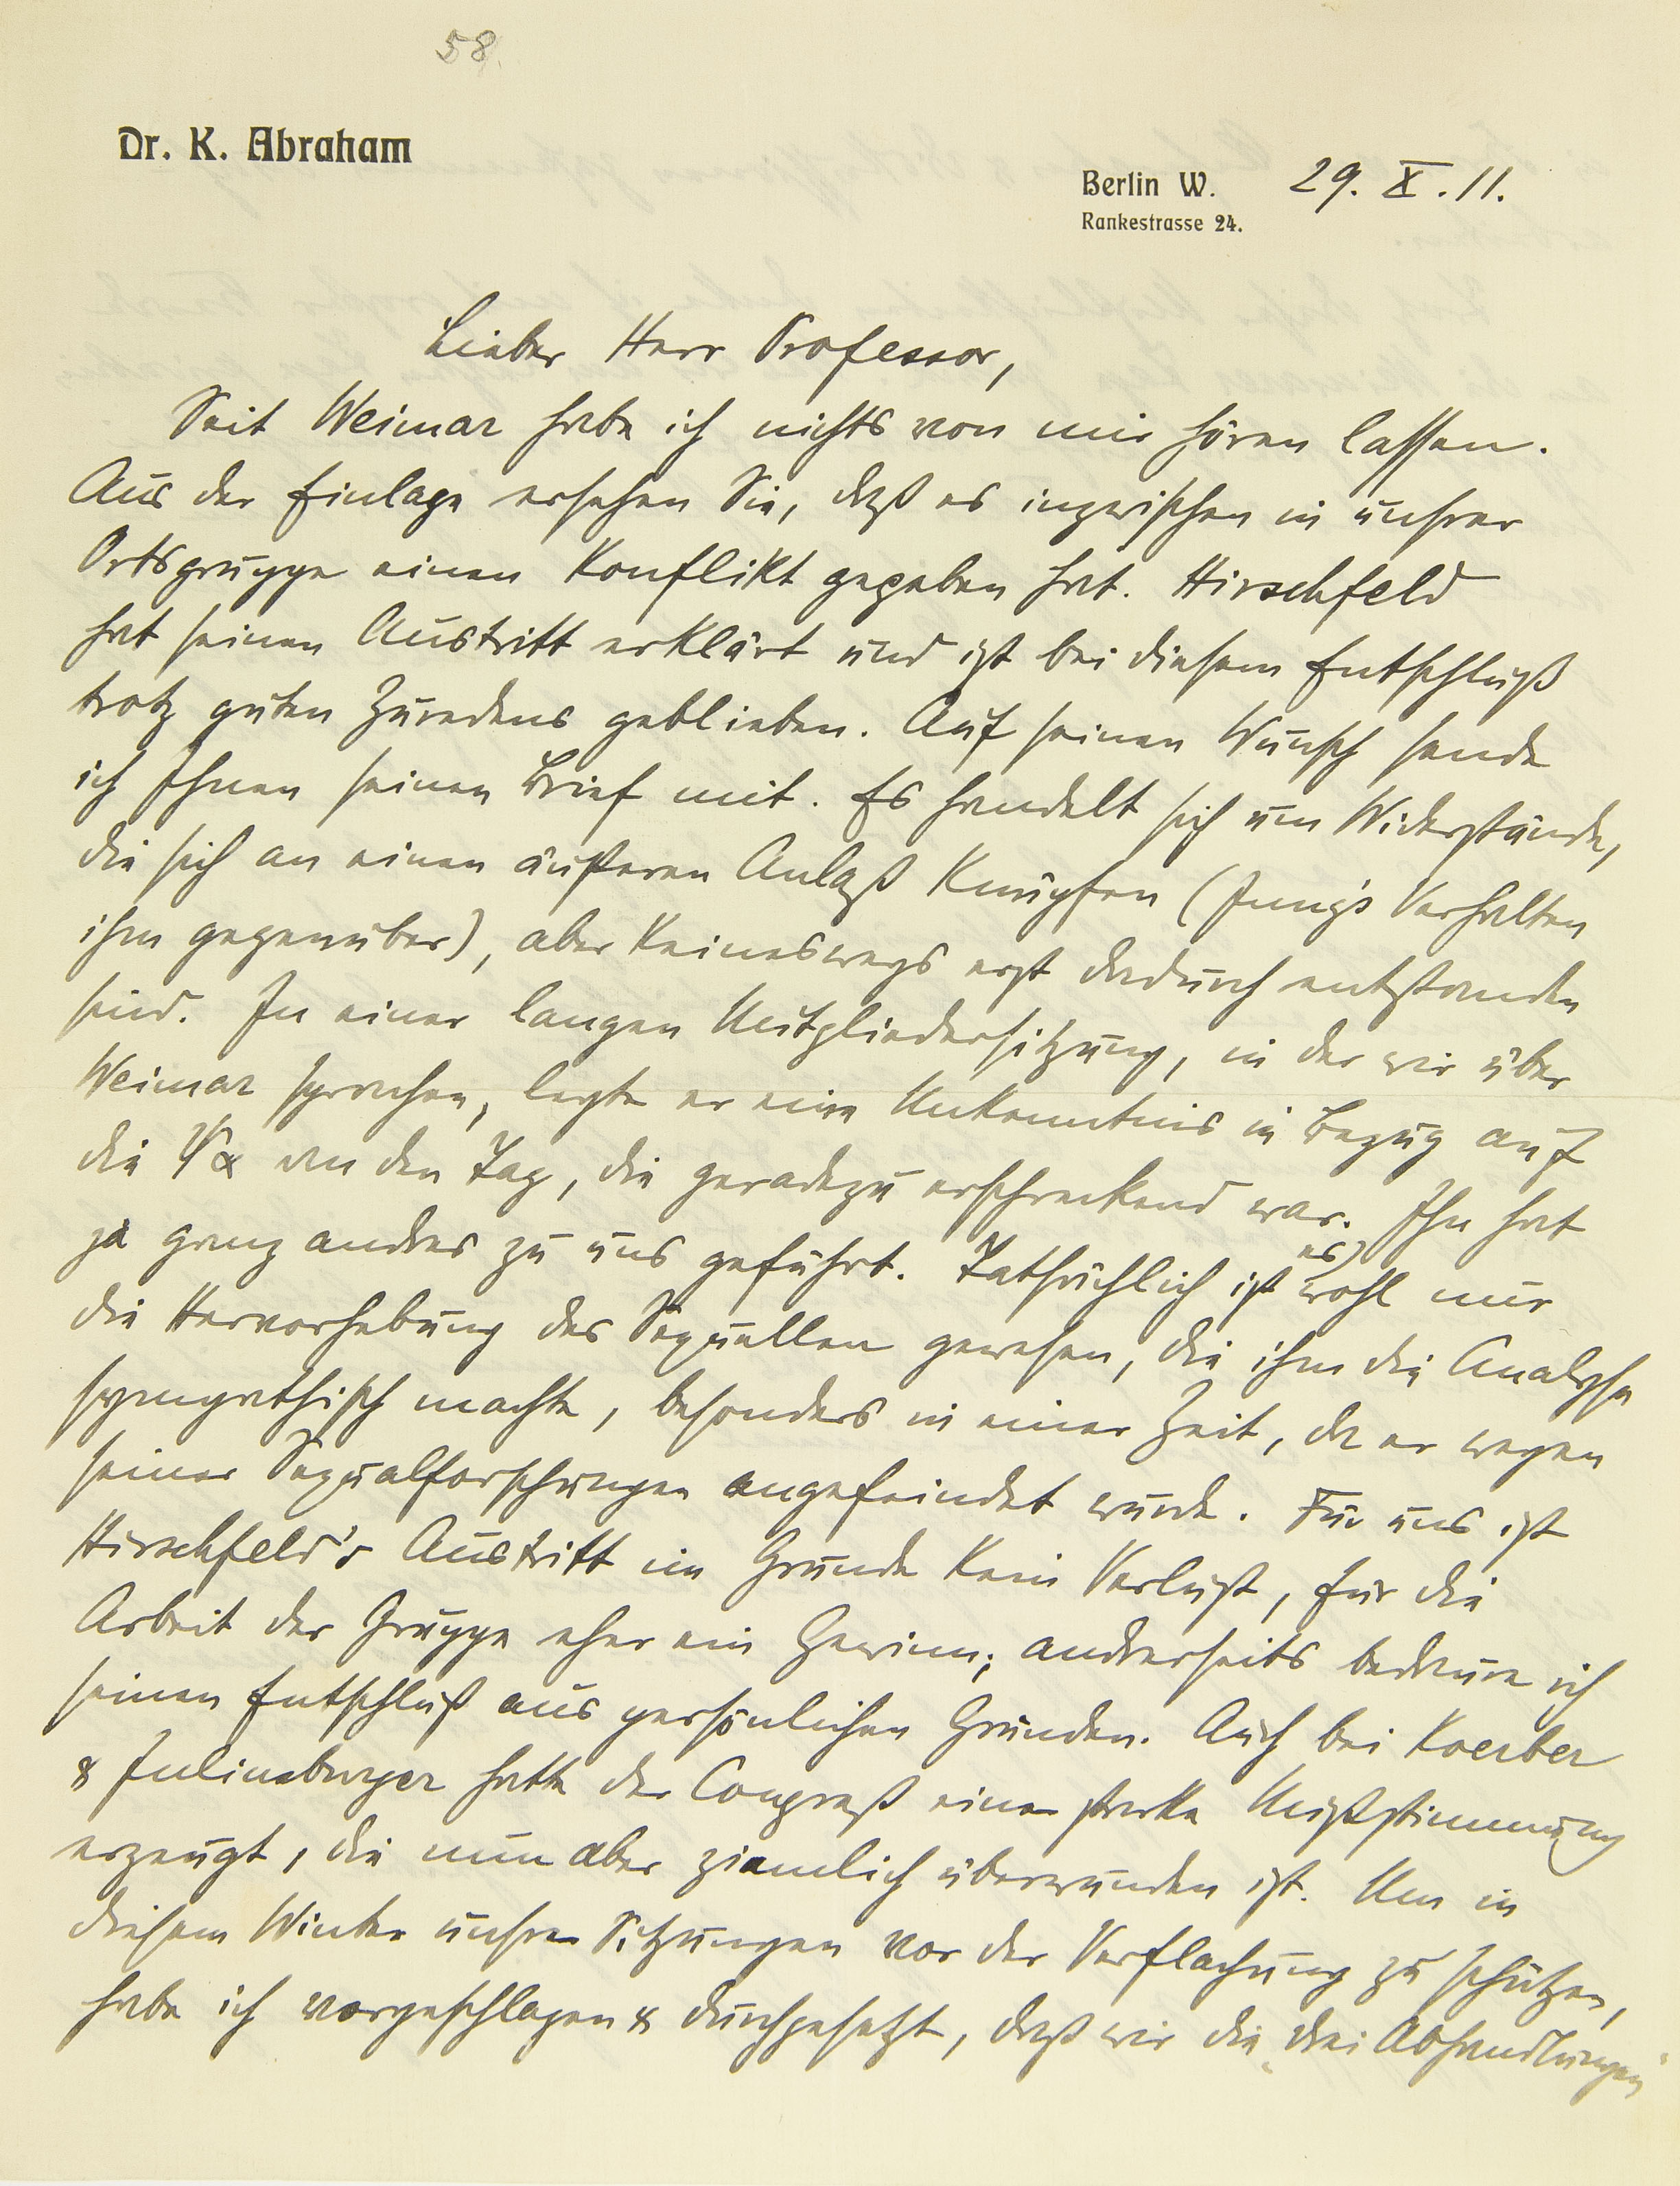 58.
Dr. K. Abraham
Berlin W. 29. X. 11.
Rankestrasse 24.
Lieber Herr Professor,
Seit Weimar habe ich nichts von mir hören lassen.
Aus der Einlage ersehen Sie, daß es inzwischen in unsrer
Ortsgruppe einen Konflikt gegeben hat. Hirschfeld
hat seinen Austritt erklärt und ist bei diesem Entschluß
trotz guten Zuredens geblieben. Auf seinen Wunsch sende
ich Ihnen seinen Brief mit. Es handelt sich um Widerstände,
die sich an einen äußeren Anlaß knüpfen (Jung's Verhalten
ihm gegenüber), aber keineswegs erst dadurch entstanden
sind. In einer langen Mitgliedersitzung, in der wir über
Weimar sprachen, legte er eine Unkenntnis in Bezug auf
die Ψα an den Tag, die geradezu erschreckend war. Ihn hat
ja ganz andres zu uns geführt. Tatsächlich ist es wohl nur
die Hervorhebung des Sexuellen gewesen, die ihm die Analyse
sympathisch machte, besonders in einer Zeit, da er wegen
seiner Sexualforschungen angefeindet wurde. Für uns ist
Hirschfeld's Austritt im Grunde kein Verlust, für die
Arbeit der Gruppe eher ein Gewinn; andrerseits bedaure ich
seinen Entschluß aus persönlichen Gründen. Auch bei Koerber
& Juliusburger hatte der Congreß eine starke Mißstimmung
erzeugt, die nun aber ziemlich überwunden ist. Um in
diesem Winter unsre Sitzungen vor der Verflachung zu schützen,
habe ich vorgeschlagen & durchgesetzt, daß wir die „drei Abhandlungen"